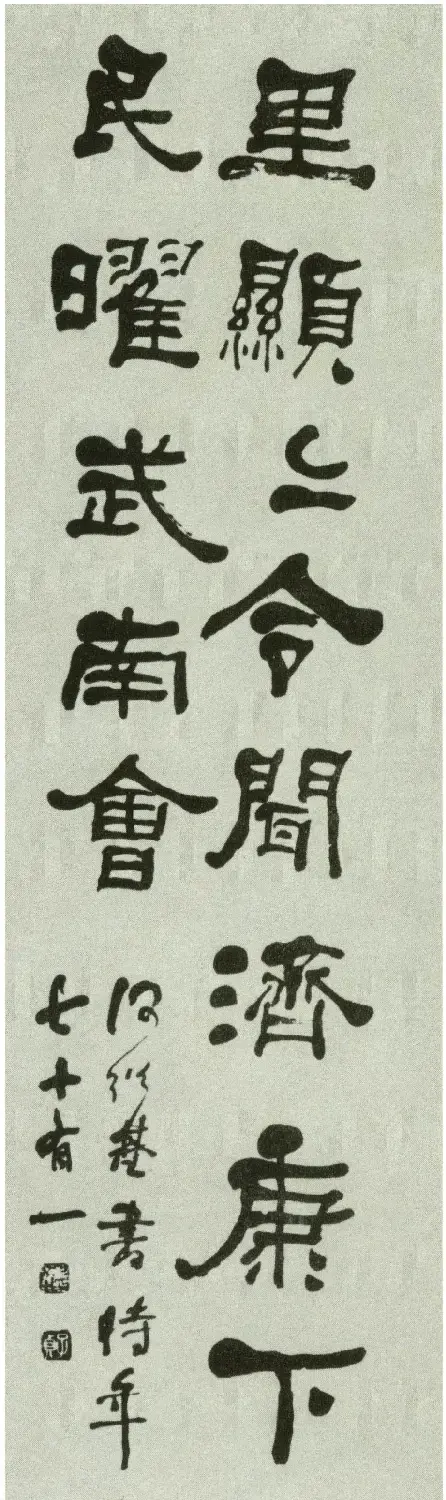 里顯〻令聞濟康下
民曜武南會
何紹基書時年
七十有一